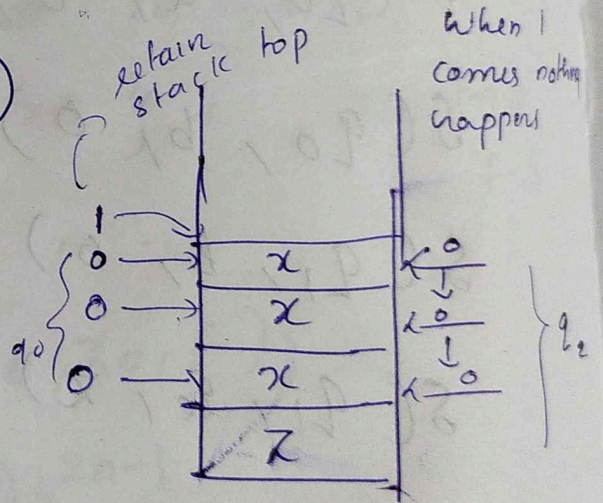 retain
stack top
When 1
comes nothing
happens
1
0 x 0
0 x 0
q0
q2
0 x 0
Z